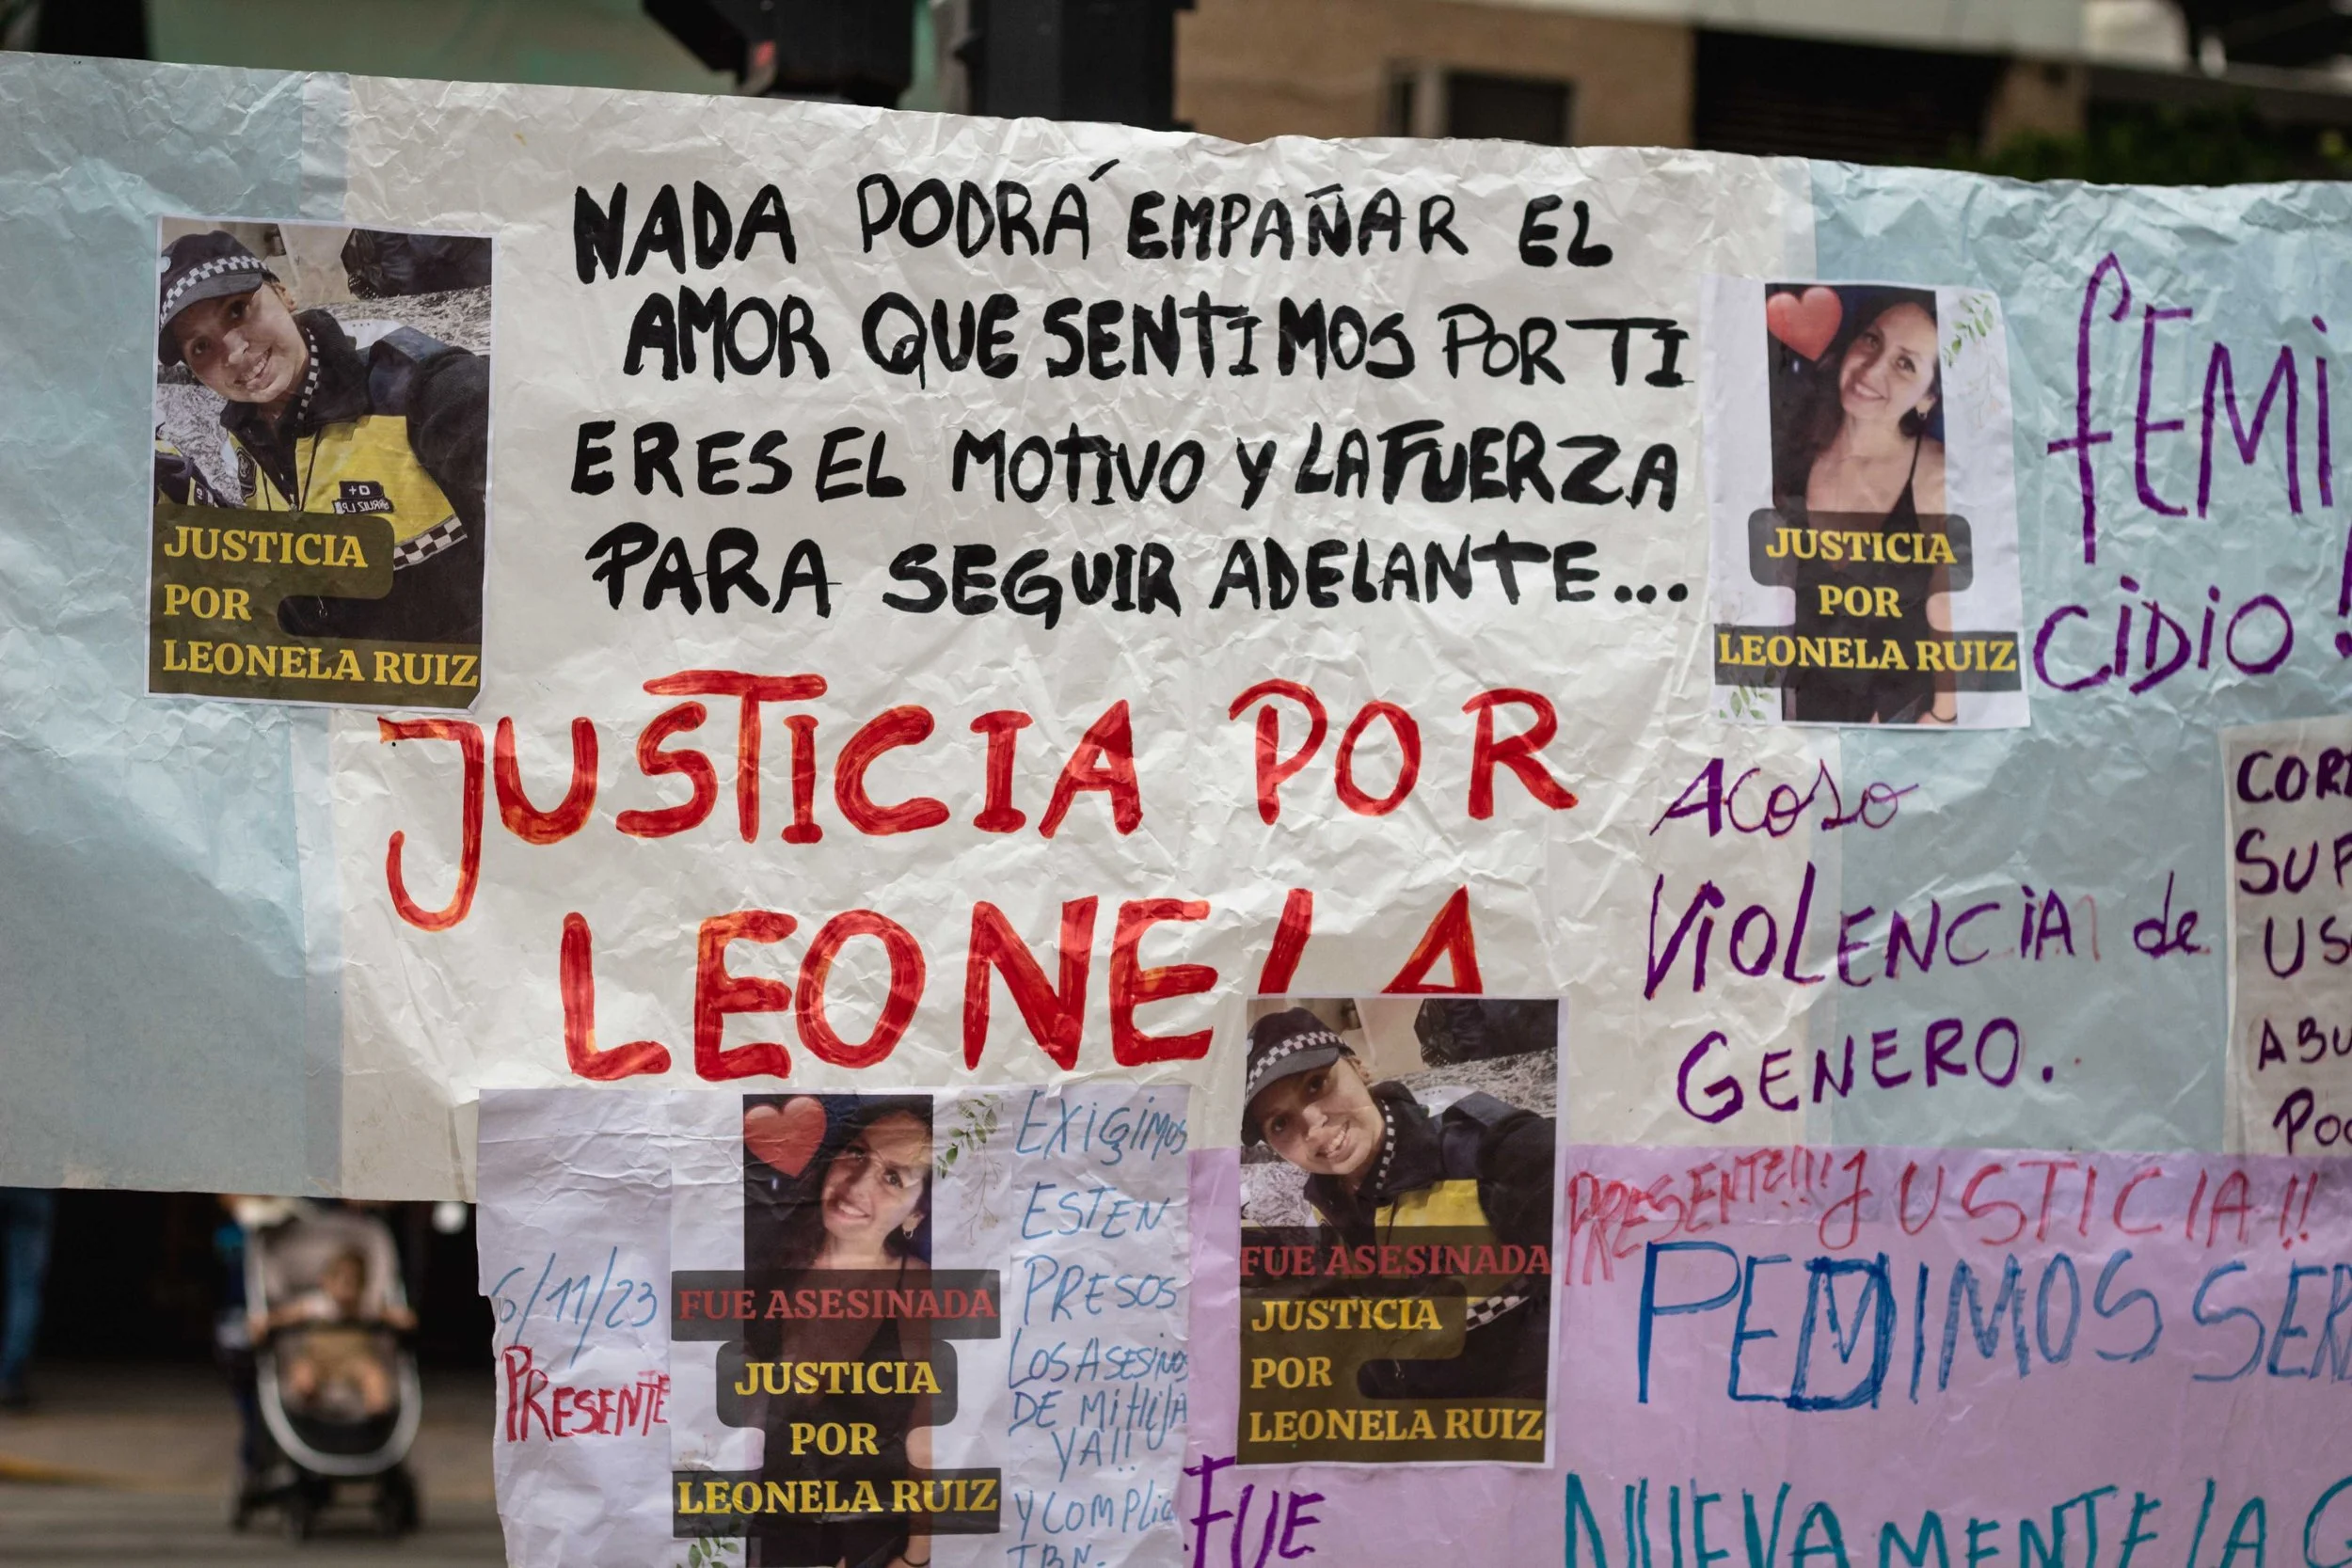 NADA PODRÁ EMPAÑAR EL
AMOR QUE SENTIMOS POR TI
ERES EL MOTIVO Y LA FUERZA
PARA SEGUIR ADELANTE...
JUSTICIA POR
LEONELA
JUSTICIA
POR
LEONELA RUIZ
JUSTICIA
POR
LEONELA RUIZ
fEMi
CiDiO!
ACOSO
ViOLENCiA de
GENERO.
COR
SU
US
ABU
PO
6/11/23
PRESENTE
FUE ASESINADA
JUSTICIA
POR
LEONELA RUIZ
EXiGiMOS
ESTEN
PRESOS
LOS ASESINOS
DE Mi HiJA
YA!!
Y COMPLIC
FUE ASESINADA
JUSTICIA
POR
LEONELA RUIZ
PRESENTE!!! JUSTICIA!!
PEDIMOS SER
FUE
NUEVAMENTE LA C